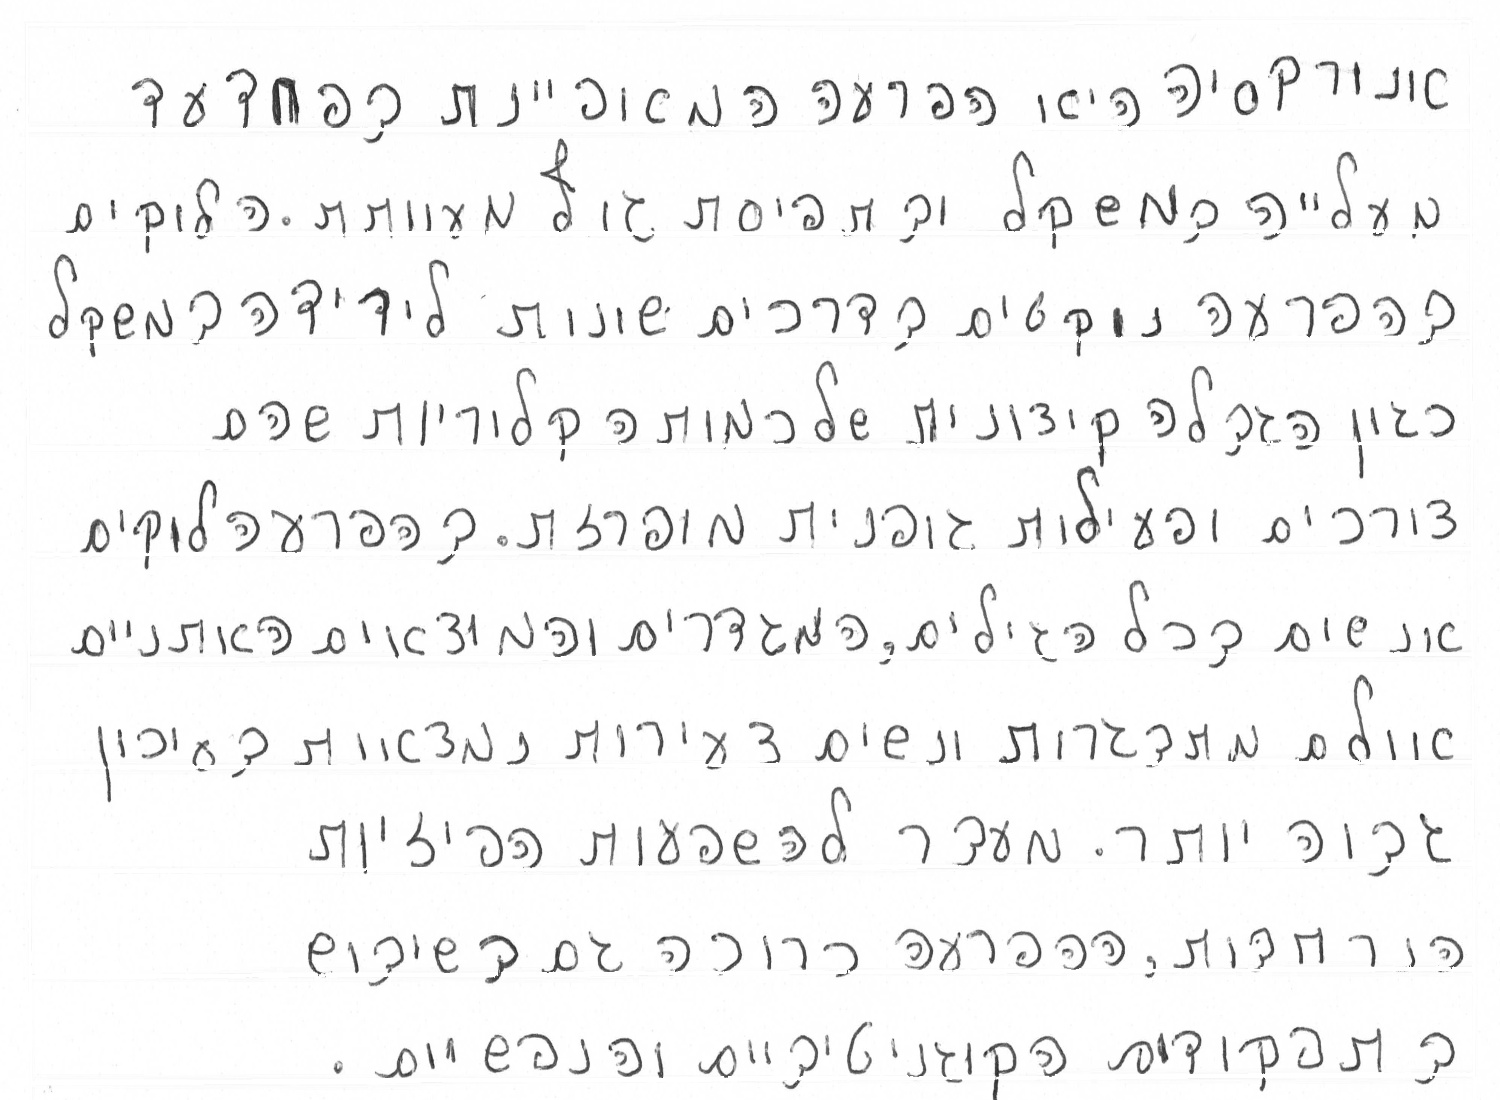 אנורקסיה היא הפרעה המאופיינת בפחד עד
מעלייה במשקל ובתפיסת גוף מעוותת. הלוקים
בהפרעה נוקטים בדרכים שונות לירידה במשקל
כגון הגבלה קיצונית של כמות הקלוריות שהם
צורכים ופעילות גופנית מופרזת. בהפרעה לוקים
אנשים בכל הגילים, המגדרים והמוצאים האתניים
אולם מתבגרות ונשים צעירות נמצאות בעיכון
גבוה יותר. מעבר להשפעות הפיזיות
הורחבות, ההפרעה כרוכה גם בשיבוש
בתפקודים הקוגניטיביים והנפשיים.